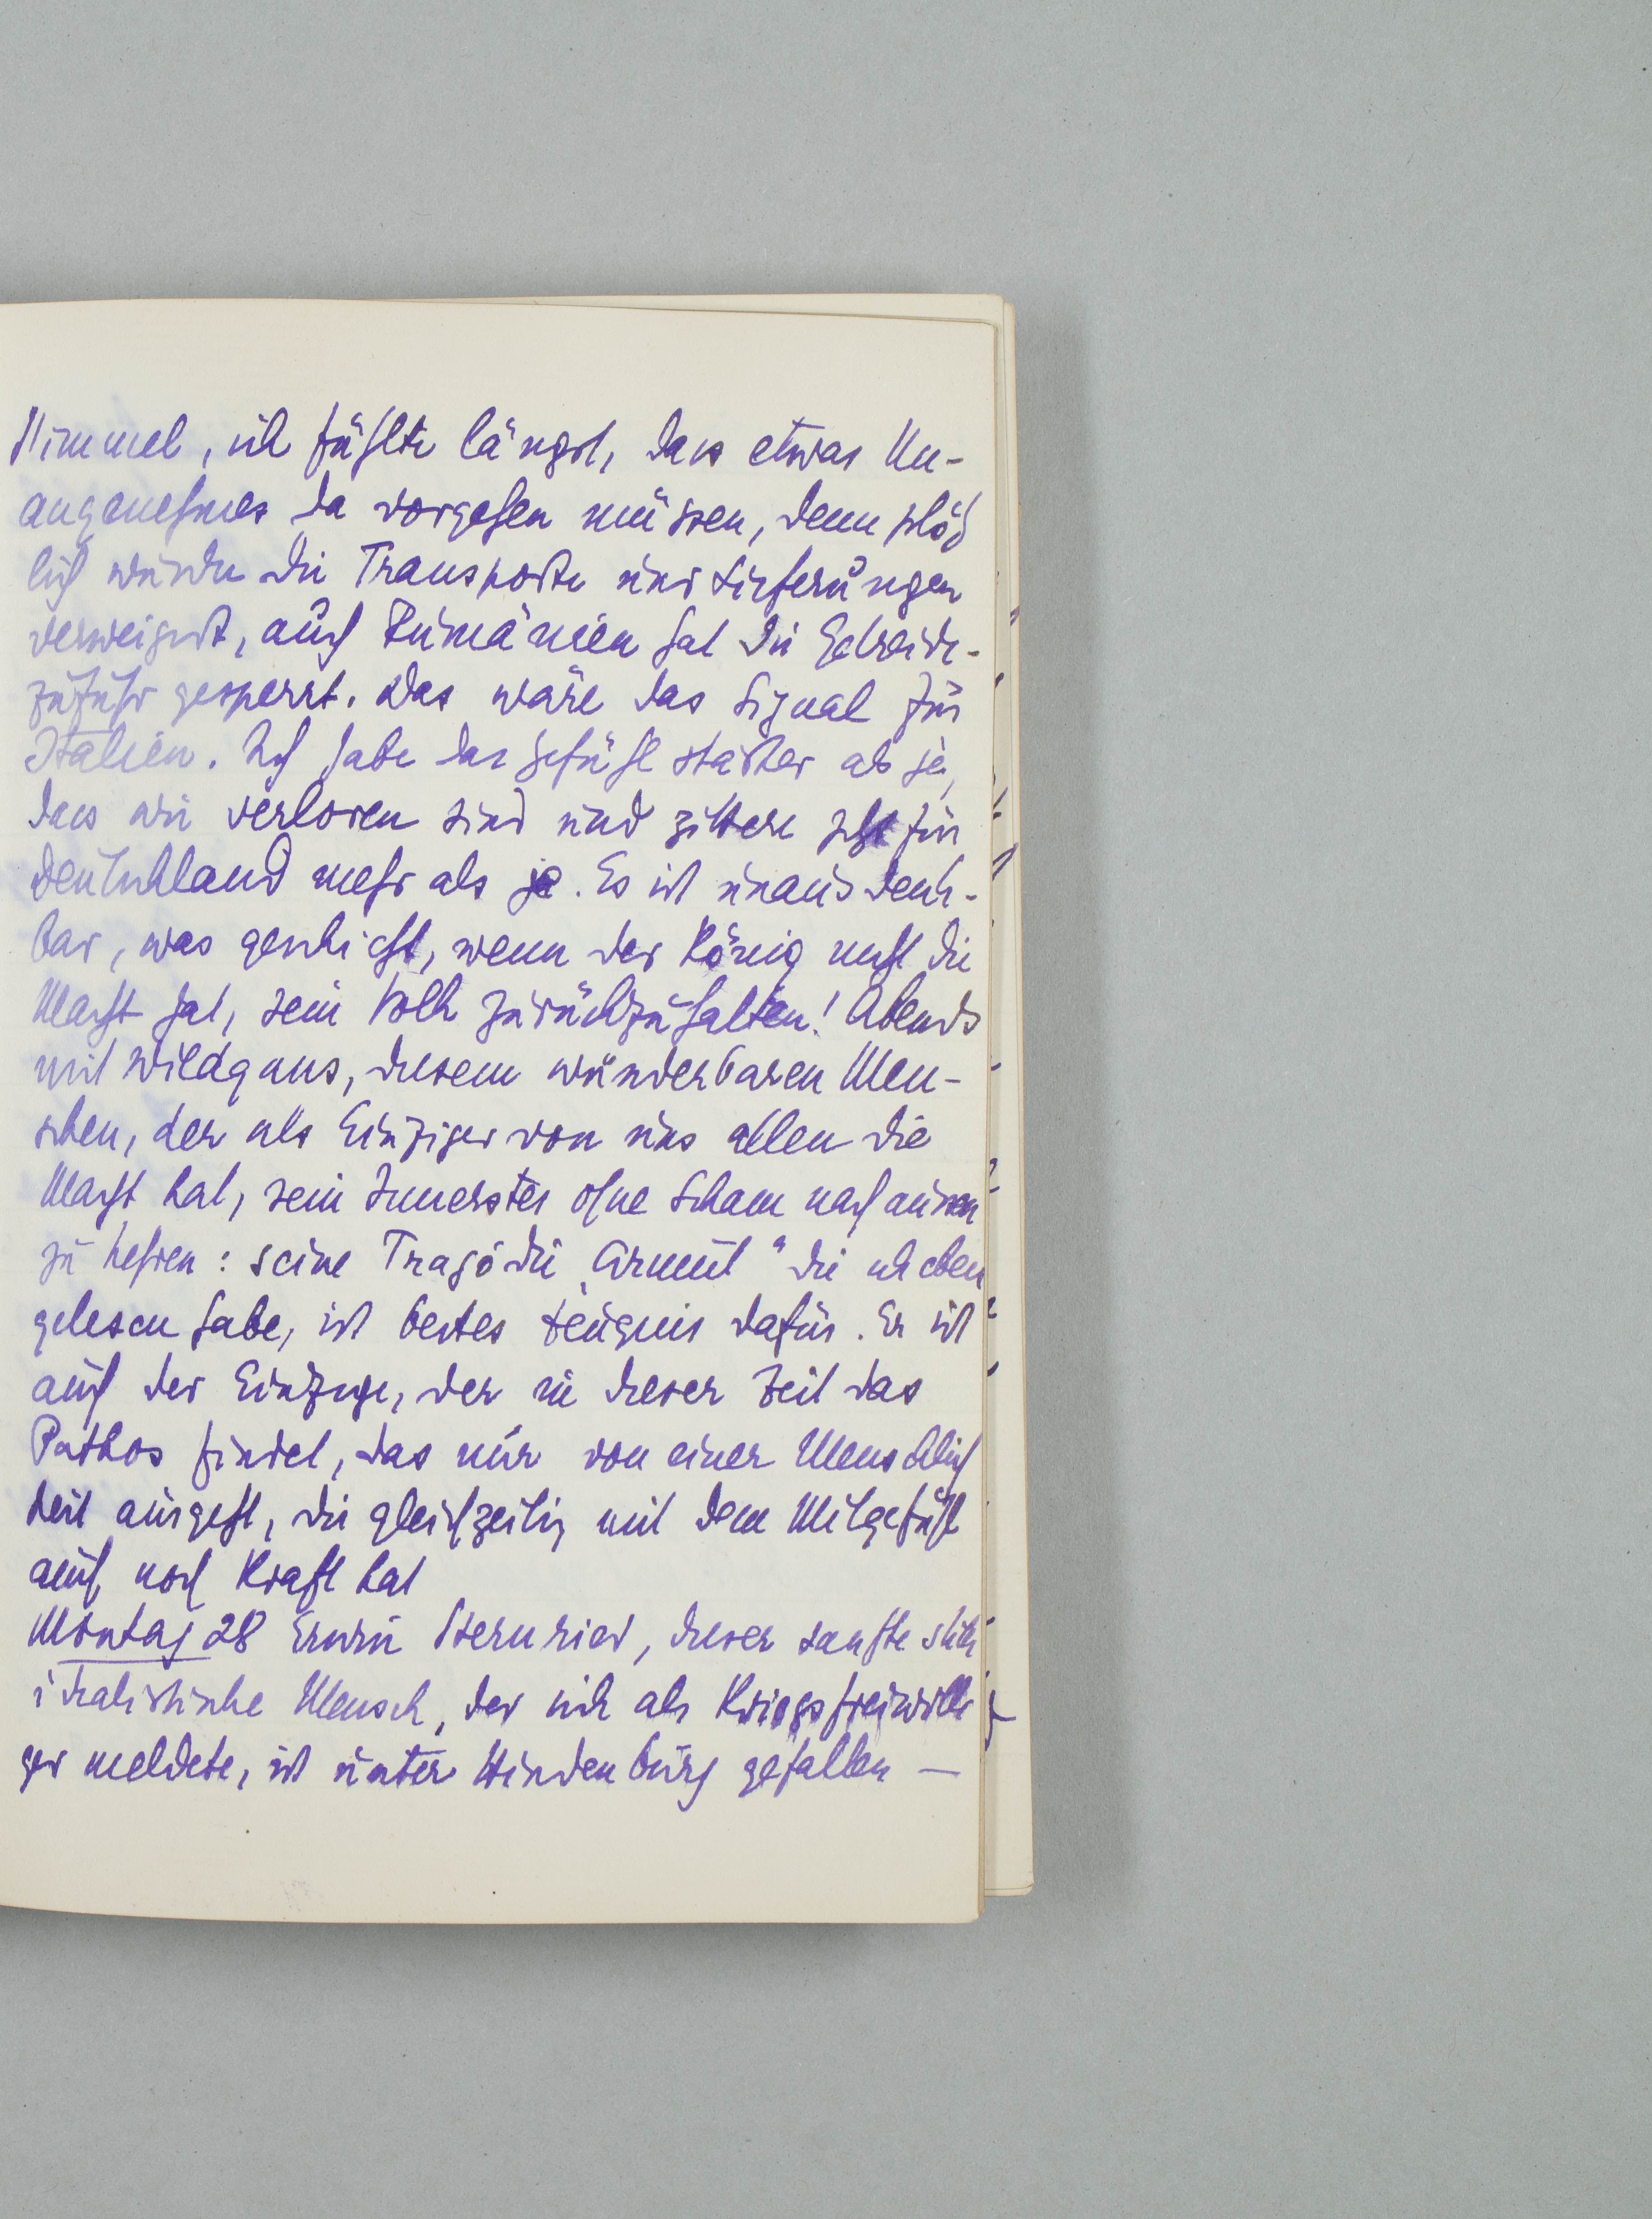 Himmel, ich fühlte längst, dass etwas Un-
angenehmes da vorgehen müssen, denn plötz
lich wurden die Transporte und Lieferungen
verweigert, auch Rumänien hat die Getreide-
zufuhr gesperrt. Das wäre das Signal für
Italien. Ich habe das Gefühl stärker als je,
dass wir verloren sind und zittere jetzt für
Deutschland mehr als je. Es ist unausdenk-
bar, was geschieht, wenn der König nicht die
Macht hat, sein Volk zurückzuhalten! Abends
mit Wildgans, diesem wunderbaren Men-
schen, der als Einziger von uns allen die
Macht hat, sein Innerstes ohne Scham nach aussen
zu kehren: seine Tragödie „Armut" die ich eben
gelesen habe, ist bestes Zeugnis dafür. Er ist
auch der Einzige, der in dieser Zeit das
Pathos findet, das nur von einer Menschlich
keit ausgeht, die gleichzeitig mit dem Mitgefühl
auch noch Kraft hat
Montag 28 Erwin, dieser sanfte
idealistische Mensch, der sich als Kriegsfreiwilli
ger meldete, ist unter Hindenburg gefallen —